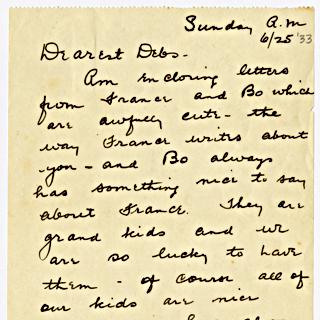 Sunday A.M
6/25 '33
Dearest Debs-
Am encloring letters
from France and Bo which
are awfully cute - the
way France writes about
you - and Bo always
has something nice to say
about France. They are
grand kids and we
are so lucky to have
them - of course all of
our kids are nice